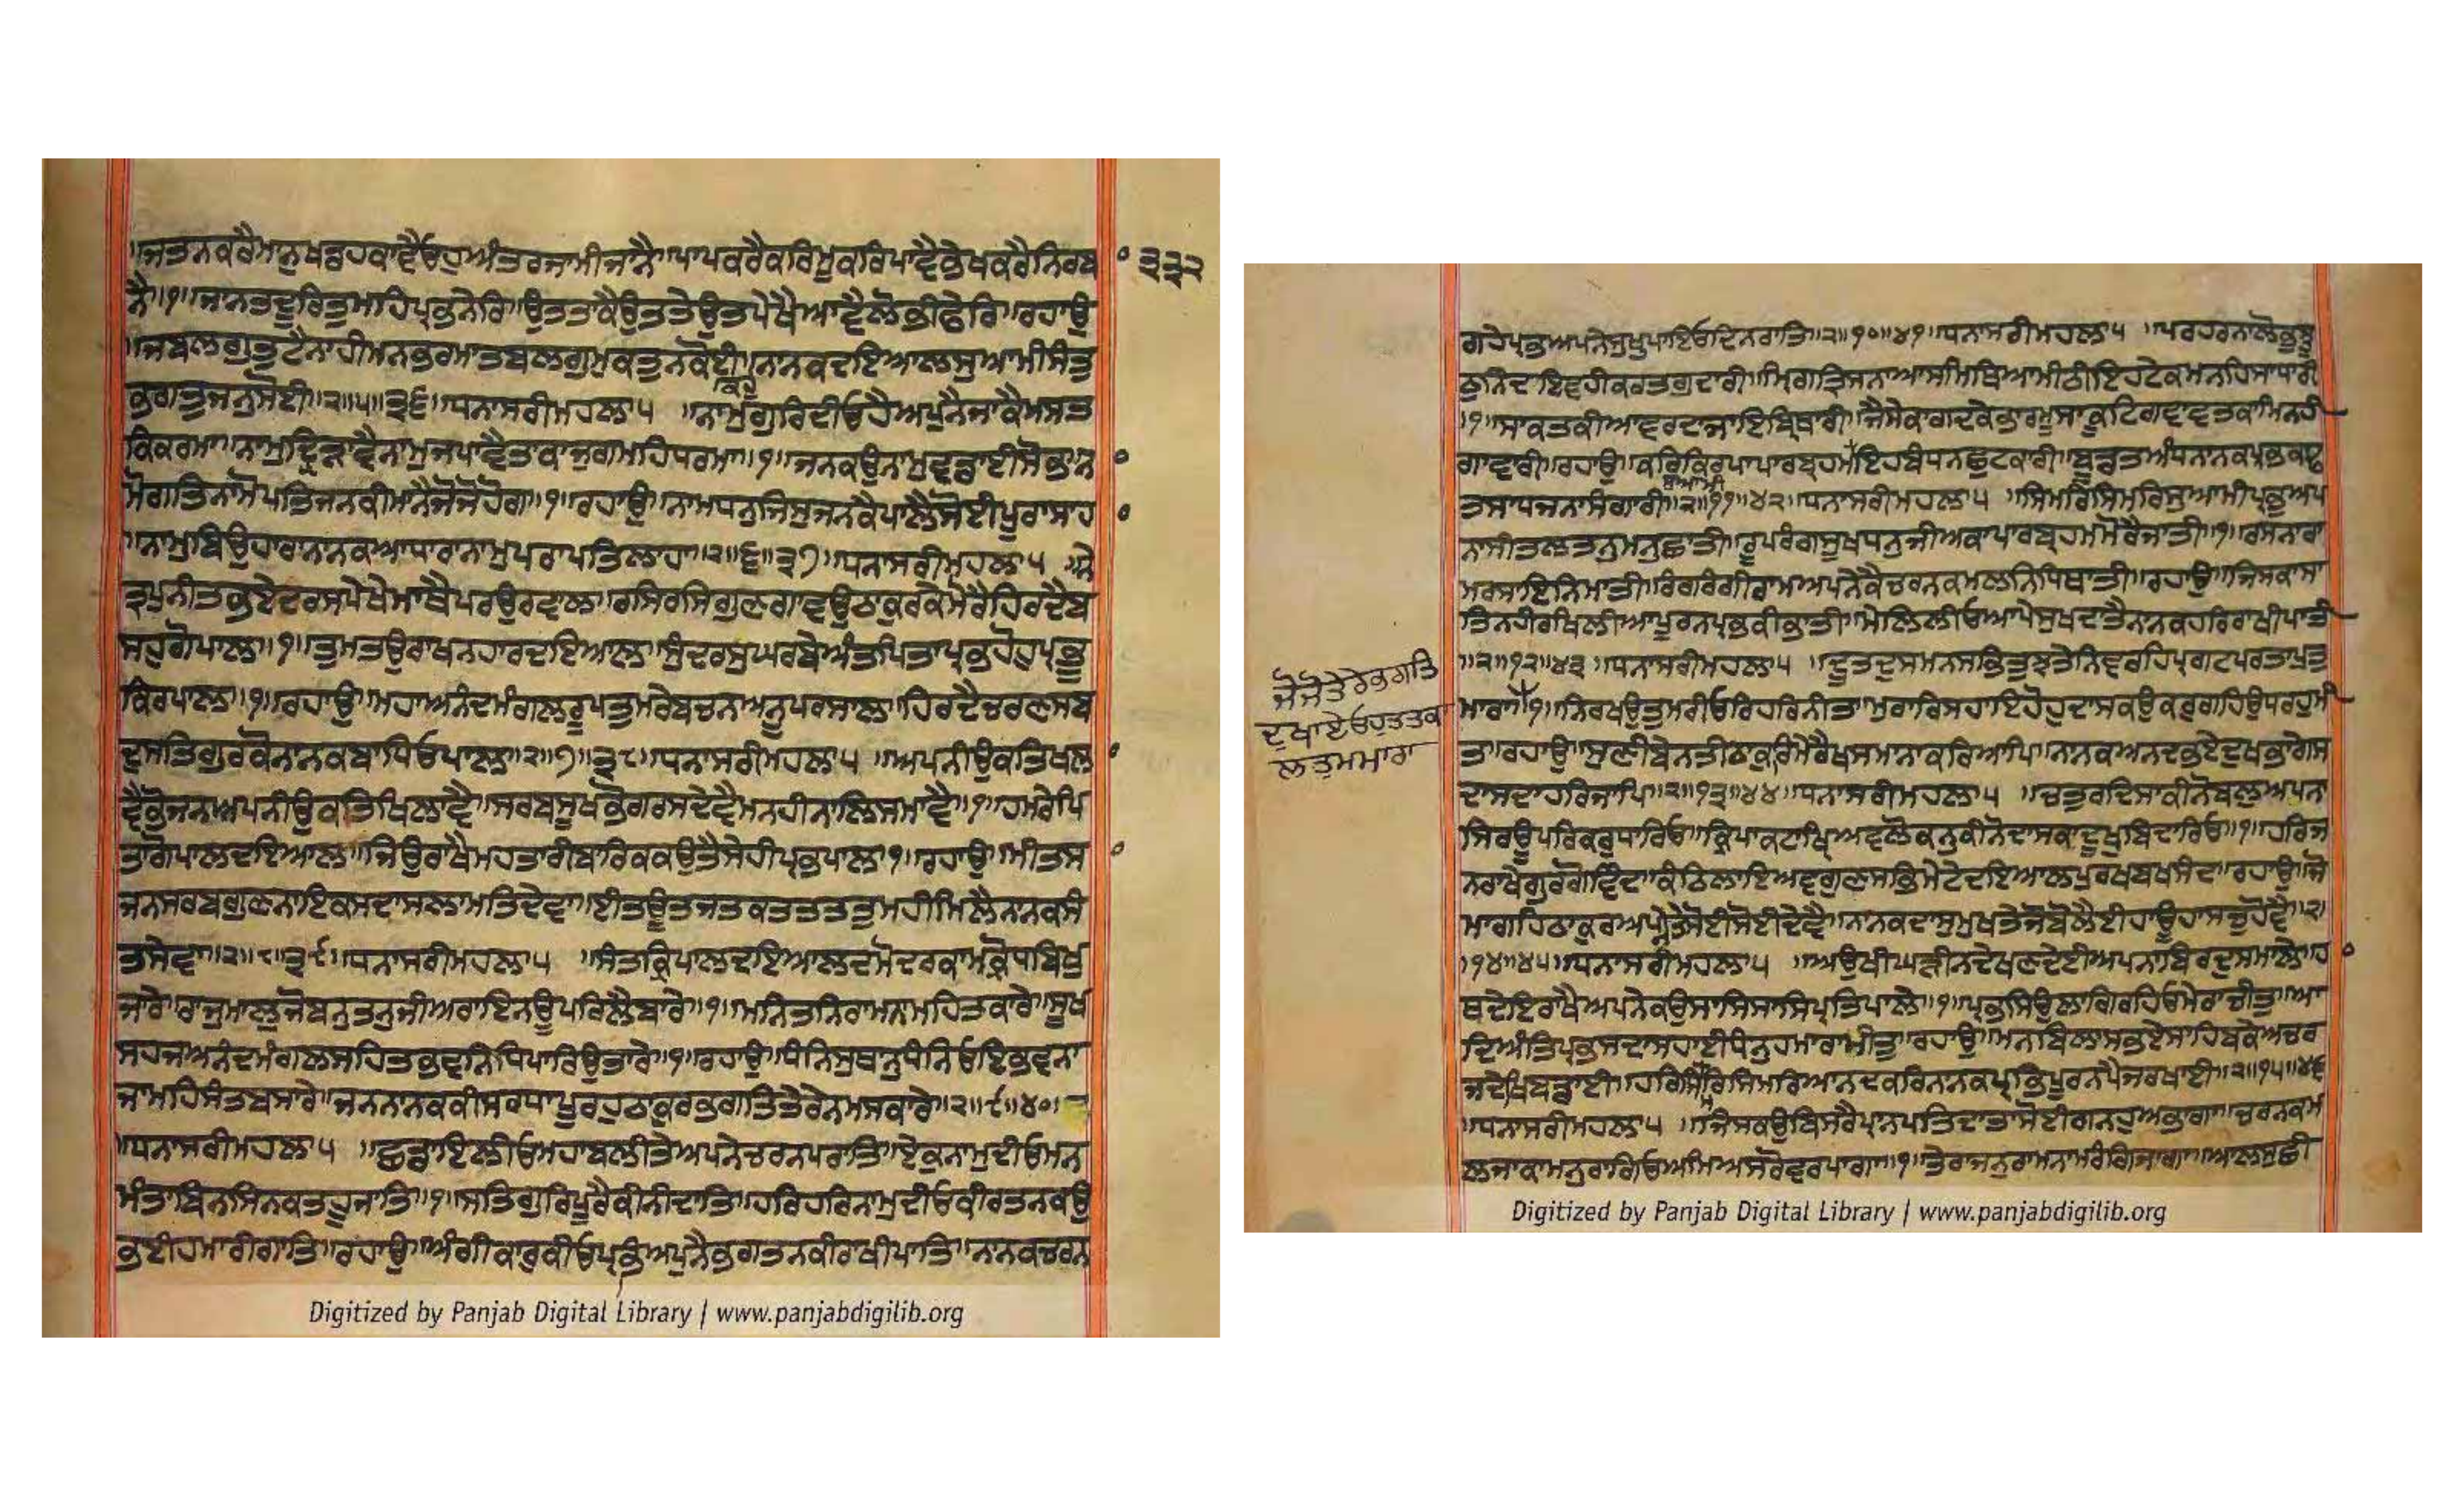 ॥ਜਤਨਕਰੈਮਾਨੁਖਡਹਕਾਵੈਓਹੁਅੰਤਰਜਾਮੀਜਾਨੈ॥ਪਾਪਕਰੈਕਰਿਮੂਕਰਿਪਾਵੈਭੇਖਕਰੈਨਿਰਬਾ ੩੩੨
ਨੈ॥੧॥ਜਾਨਤਦੂਰਿਤੁਮਹਿਪ੍ਰਭਨੇਰਿ॥ਉਤਤਾਕੈਉਤਤੇਉਤਪੇਖੈਆਵੈਲੋਭੀਫੇਰਿ॥ਰਹਾਉ
॥ਜਬਲਗੁਤੁਟੈਨਾਹੀਮਨਭਰਮਾਤਬਲਗੁਮੁਕਤੁਨਕੋਈ॥ਨਾਨਕਦਇਆਲਸੁਆਮੀਸੰਤੁ
ਭਗਤੁਜਨੁਸੋਈ॥੨॥੫॥੩੬॥ਧਨਾਸਰੀਮਹਲਾ੫ ॥ਨਾਮੁਗੁਰਿਦੀਓਹੈਅਪੁਨੈਜਾਕੈਮਸਤ
ਕਿਕਰਮਾ॥ਨਾਮੁਦ੍ਰਿੜਾਵੈਨਾਮੁਜਪਾਵੈਤਾਕਾਜੁਗਮਹਿਧਰਮਾ॥੧॥ਜਨਕਉਨਾਮੁਵਡਾਈਸੋਭਨ
ਮੋਗਤਿਨਾਮੋਪਤਿਜਨਕੀਮਾਨੈਜੋਜੋਹੋਗ॥੧॥ਰਹਾਉ॥ਨਾਮਧਨੁਜਿਸੁਜਨਕੈਪਾਲੈਸੋਈਪੂਰਾਸਾਹਾ
॥ਨਾਮੁਬਿਉਹਾਰਾਨਾਨਕਆਧਾਰਾਨਾਮੁਪਰਾਪਤਿਲਾਹਾ॥੨॥੬॥੩੭॥ਧਨਾਸਰੀਮਹਲਾ੫ ॥ਨੇ
ਤ੍ਰਪੁਨੀਤਭਏਦਰਸਪੇਖੇਮਾਥੈਪਰਉਰਵਾਲ॥ਰਸਿਰਸਿਗੁਣਗਾਵਉਠਾਕੁਰਕੇਮੋਰੈਹਿਰਦੈਬ
ਸਹੁਗੋਪਾਲ॥੧॥ਤੁਮਤਉਰਾਖਨਹਾਰਦਇਆਲ॥ਸੁੰਦਰਸੁਘਰਬੇਅੰਤਪਿਤਾਪ੍ਰਭਹੋਹੁਪ੍ਰਭੂ
ਕਿਰਪਾਲ॥੧॥ਰਹਾਉ॥ਮਹਾਅਨੰਦਮੰਗਲਰੂਪਤੁਮਰੇਬਚਨਅਨੂਪਰਸਾਲ॥ਹਿਰਦੈਚਰਣਸਬ
ਦੁਸਤਿਗੁਰਕੋਨਾਨਕਬਾਧਿਓਪਾਲ॥੨॥੭॥੩੮॥ਧਨਾਸਰੀਮਹਲਾ੫ ॥ਅਪਨੀਉਕਤਿਖਲਾ
ਵੈਭੋਜਨਅਪਨੀਉਕਤਿਖਿਲਾਵੈ॥ਸਰਬਸੂਖਭੋਗਰਸਦੇਵੈਮਨਹੀਨਾਲਿਸਮਾਵੈ॥੧॥ਹਮਰੇਪਿ
ਤਾਗੋਪਾਲਦਇਆਲ॥ਜਿਉਰਾਖੈਮਹਤਾਰੀਬਾਰਿਕਕਉਤੈਸੇਹੀਪ੍ਰਭਪਾਲ॥੧॥ਰਹਾਉ॥ਮੀਤਸਾ
ਜਨਸਰਬਗੁਣਨਾਇਕਸਦਾਸਲਾਮਤਿਦੇਵਾ॥ਈਤਊਤਜਤਕਤਤਤਤੁਮਹੀਮਿਲੈਨਾਨਕਸੰ
ਤਸੇਵਾ॥੨॥੮॥੩੯॥ਧਨਾਸਰੀਮਹਲਾ੫ ॥ਸੰਤਕ੍ਰਿਪਾਲਦਇਆਲਦਮੋਦਰਕਾਮਕ੍ਰੋਧਬਿਖੁ
ਜਾਰੇ॥ਰਾਜੁਮਾਲੁਜੋਬਨੁਤਨੁਜੀਅਰਾਇਨਊਪਰਿਲੈਬਾਰੇ॥੧॥ਮਨਿਤਨਿਰਾਮਨਾਮਹਿਤਕਾਰੇ॥ਸੂਖ
ਸਹਜਅਨੰਦਮੰਗਲਸਹਿਤਭਵਨਿਧਿਪਾਰਿਉਤਾਰੇ॥੧॥ਰਹਾਉ॥ਧੰਨਿਸੁਥਾਨੁਧੰਨਿਓਇਭਵਨਾ
ਜਾਮਹਿਸੰਤਬਸਾਰੇ॥ਜਨਨਾਨਕਕੀਸਰਧਾਪੂਰਹੁਠਾਕੁਰਭਗਤਿਤੇਰੇਨਮਸਕਾਰੇ॥੨॥੯॥੪੦॥
॥ਧਨਾਸਰੀਮਹਲਾ੫ ॥ਛਡਾਇਲੀਓਮਹਾਬਲੀਤੇਅਪਨੇਚਰਨਪਰਾਤਿ॥ਏਕੁਨਾਮੁਦੀਓਮਨ
ਮੰਤਾਬਿਨਸਿਨਕਤਹੂਜਾਤਿ॥੧॥ਸਤਿਗੁਰਿਪੂਰੈਕੀਨੀਦਾਤਿ॥ਹਰਿਹਰਿਨਾਮੁਦੀਓਕੀਰਤਨਕਉ
ਭਈਹਮਾਰੀਗਾਤਿ॥ਰਹਾਉ॥ਅੰਗੀਕਾਰੁਕੀਓਪ੍ਰਭਿਅਪੁਨੈਭਗਤਨਕੀਰਾਖੀਪਾਤਿ॥ਨਾਨਕਚਰਨ
Digitized by Panjab Digital Library | www.panjabdigilib.org
ਗਹੇਪ੍ਰਭਅਪਨੇਸੁਖੁਪਾਇਓਦਿਨਰਾਤਿ॥੨॥੧੦॥੪੧॥ਧਨਾਸਰੀਮਹਲਾ੫ ॥ਪਰਹਰਨਾਲੋਭੁਝੂ
ਠਨਿੰਦਇਵਹੀਕਰਤਗੁਦਾਰੀ॥ਮ੍ਰਿਗਤ੍ਰਿਸਨਾਆਸਮਿਥਿਆਮੀਠੀਇਹਟੇਕਮਨਹਿਸਾਧਾਰੀ
॥੧॥ਸਾਕਤਕੀਆਵਰਦਾਜਾਇਬ੍ਰਿਥਾਰੀ॥ਜੈਸੇਕਾਗਦਕੇਭਾਰਮੂਸਾਟੂਕਿਗਵਾਵਤਕਾਮਿਨਹੀ
ਗਾਵਾਰੀ॥ਰਹਾਉ॥ਕਰਿਕਿਰਪਾਪਾਰਬ੍ਰਹਮਇਹਬੰਧਨਛੁਟਕਾਰੀ॥ਬੂਡਤਅੰਧਨਾਨਕਪ੍ਰਭਕਾਢ
ਤਸਾਧਜਨਾਸੰਗਾਰੀ॥੨॥੧੧॥੪੨॥ਧਨਾਸਰੀਮਹਲਾ੫ ॥ਸਿਮਰਿਸਿਮਰਿਸੁਆਮੀਪ੍ਰਭੁਅਪ
ਨਾਸੀਤਲਤਨੁਮਨੁਛਾਤੀ॥ਰੂਪਰੰਗਸੂਖਧਨੁਜੀਅਕਾਪਾਰਬ੍ਰਹਮਮੋਰੈਜਾਤੀ॥੧॥ਰਸਨਾਰਾ
ਮਰਸਾਇਨਿਮਾਤੀ॥ਰੰਗਰੰਗੀਰਾਮਅਪਨੇਕੈਚਰਨਕਮਲਨਿਧਿਥਾਤੀ॥ਰਹਾਉ॥ਜਿਸਕਾਸਾ
ਤਿਨਹੀਰਖਿਲੀਆਪੂਰਨਪ੍ਰਭਕੀਭਾਤੀ॥ਮੇਲਿਲੀਓਆਪੇਸੁਖਦਾਤੈਨਾਨਕਹਰਿਰਾਖੀਪਾਤੀ
॥੨॥੧੨॥੪੩॥ਧਨਾਸਰੀਮਹਲਾ੫ ॥ਦੂਤਦੁਸਮਨਸਭਿਤੁਝਤੇਨਿਵਰਹਿਪ੍ਰਗਟਪਰਤਾਪੁਤੁ
ਜੋਜੋਤੇਰੇਭਗਤਿ
ਦੁਖਾਏਓਹੁਤਤਕਾ
ਲਤੁਮਮਾਰਾ
ਮਾਰਾ॥੧॥ਨਿਰਖਉਤੁਮਰੀਓਰਿਹਰਿਨੀਤਾ॥ਮੁਰਾਰਿਸਹਾਇਹੋਹੁਦਾਸਕਉਕਰੁਗਹਿਉਧਰਹੁਮੀ
ਤਾ॥ਰਹਾਉ॥ਸੁਣੀਬੇਨਤੀਠਾਕੁਰਿਮੇਰੈਖਸਮਾਨਾਕਰਿਆਪਿ॥ਨਾਨਕਅਨਦਭਏਦੁਖਭਾਗੇਸ
ਦਾਸਦਾਹਰਿਜਾਪਿ॥੨॥੧੩॥੪੪॥ਧਨਾਸਰੀਮਹਲਾ੫ ॥ਚਤੁਰਦਿਸਾਕੀਨੋਬਲੁਅਪਨਾ
ਸਿਰਊਪਰਿਕਰੁਧਾਰਿਓ॥ਕ੍ਰਿਪਾਕਟਾਖ੍ਯਿਅਵਲੋਕਨੁਕੀਨੋਦਾਸਕਾਦੂਖੁਬਿਦਾਰਿਓ॥੧॥ਹਰਿਜ
ਨਰਾਖੇਗੁਰਗੋਵਿੰਦ॥ਕੰਠਿਲਾਇਅਵਗੁਣਸਭਿਮੇਟੇਦਇਆਲਪੁਰਖਬਖਸੰਦ॥ਰਹਾਉ॥ਜੋ
ਮਾਗਹਿਠਾਕੁਰਅਪੁਨੇਤੇਸੋਈਸੋਈਦੇਵੈ॥ਨਾਨਕਦਾਸੁਮੁਖਤੇਜੋਬੋਲੈਈਹਾਊਹਾਸਚੁਹੋਵੈ॥੨॥
॥੧੪॥੪੫॥ਧਨਾਸਰੀਮਹਲਾ੫ ॥ਅਉਖੀਘੜੀਨਦੇਖਣਦੇਈਅਪਨਾਬਿਰਦੁਸਮਾਲੇ॥ਹਾ
ਥਦੇਇਰਾਖੈਅਪਨੇਕਉਸਾਸਿਸਾਸਿਪ੍ਰਤਿਪਾਲੇ॥੧॥ਪ੍ਰਭਸਿਉਲਾਗਿਰਹਿਓਮੇਰਾਚੀਤੁ॥ਆ
ਦਿਅੰਤਿਪ੍ਰਭੁਸਦਾਸਹਾਈਧੰਨੁਹਮਾਰਾਮੀਤੁ॥ਰਹਾਉ॥ਮਨਬਿਲਾਸਭਏਸਾਹਿਬਕੇਅਚਰ
ਜਦੇਖਿਬਡਾਈ॥ਹਰਿਸਿਮਰਿਸਿਮਰਿਆਨਦਕਰਿਨਾਨਕਪ੍ਰਭਿਪੂਰਨਪੈਜਰਖਾਈ॥੨॥੧੫॥੪੬
॥ਧਨਾਸਰੀਮਹਲਾ੫ ॥ਜਿਸਕਉਬਿਸਰੈਪ੍ਰਾਨਪਤਿਦਾਤਾਸੋਈਗਨਹੁਅਭਾਗਾ॥ਚਰਨਕਮ
ਲਜਾਕਾਮਨੁਰਾਗਿਓਅਮਿਅਸਰੋਵਰਪਾਗਾ॥੧॥ਤੇਰਾਜਨੁਰਾਮਨਾਮਰੰਗਿਜਾਗਾ॥ਆਲਸੁਛੀ
Digitized by Panjab Digital Library | www.panjabdigilib.org